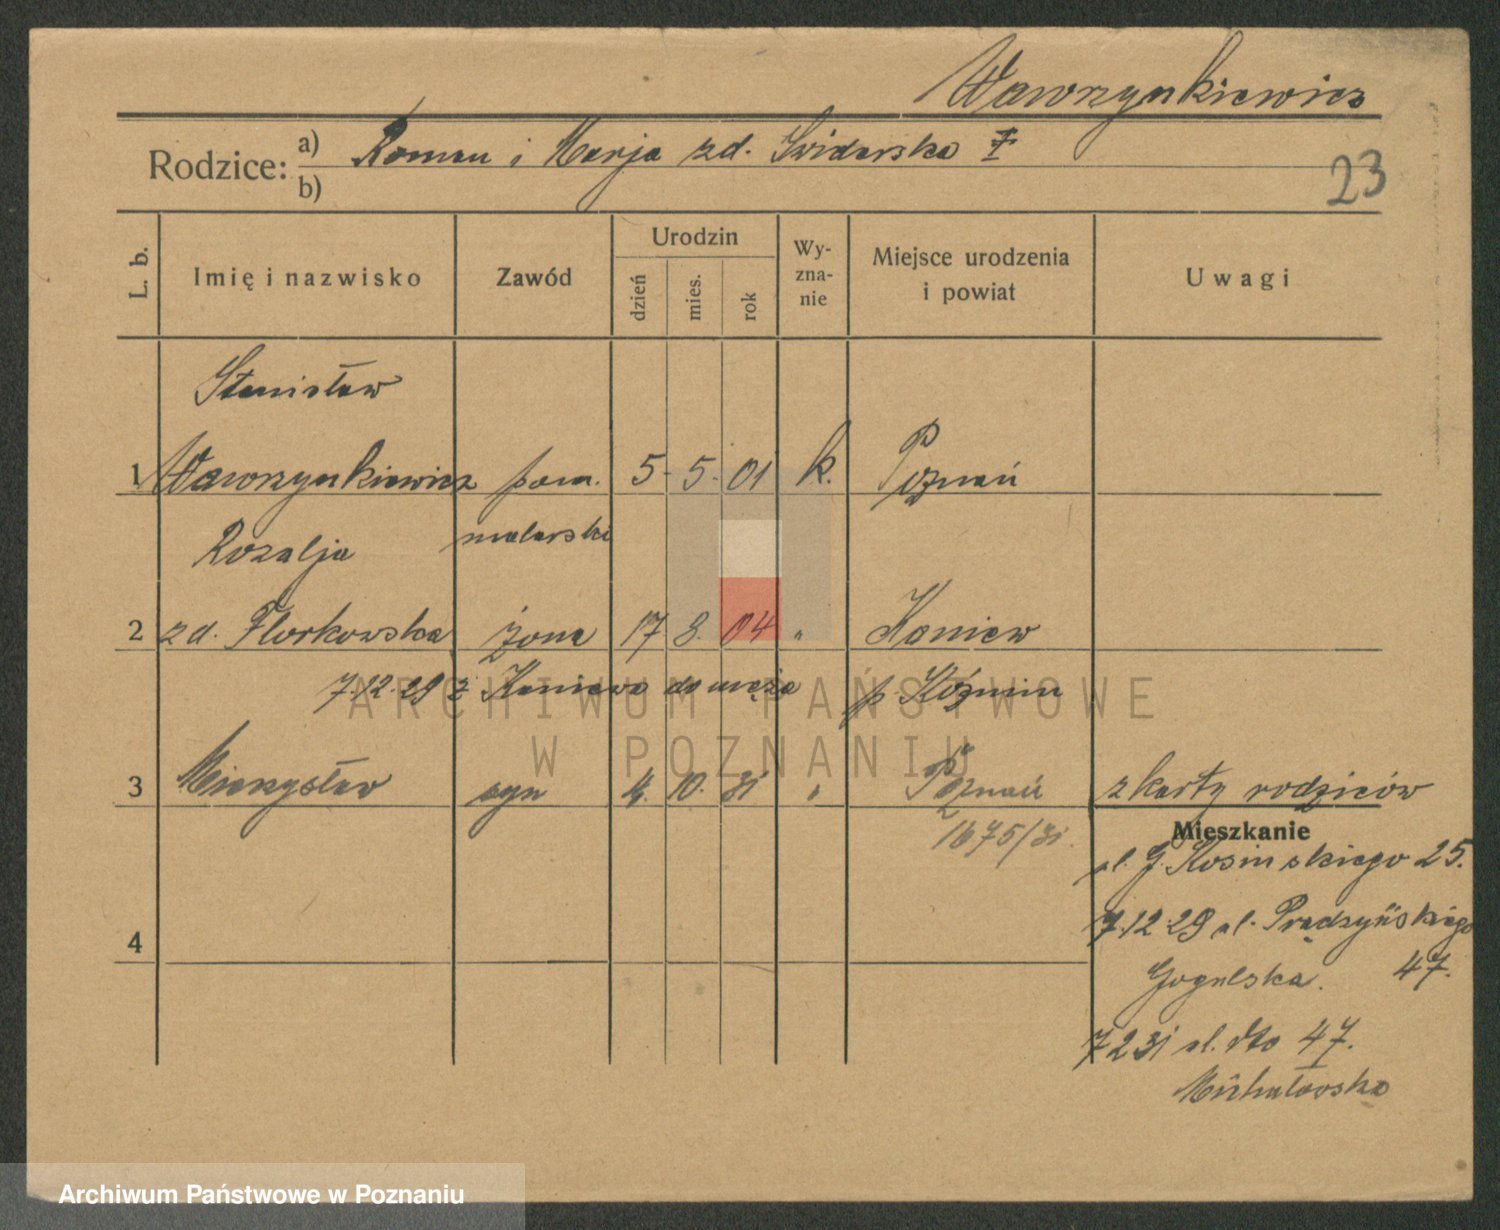 Wawrzynkiewicz
Rodzice: a) Roman i Marja zd. Swiderska
b)
23
L. b. Imię i nazwisko Zawód Urodzin dzień mies. rok Wyznanie Miejsce urodzenia i powiat Uwagi
Stanisław
1 Wawrzynkiewicz pom. 5. 5. 01 k. Poznań
Rozalja malarski
2 zd. Florkowska żona 17 8. 04 " Koniew
7.12.29 z Koniewa do męża p. Koźmin
3 Mieczysław syn 4. 10. 31 " Poznań z karty rodziców
1675/31.
Mieszkanie
ul. G. Kosinskiego 25.
7.12.29 ul. Prądzyńskiego
Gogulska. 47.
4
7 2 31 ul. dto 47.
I
Michalowska
ARCHIWUM PAŃSTWOWE
W POZNANIU
Archiwum Państwowe w Poznaniu